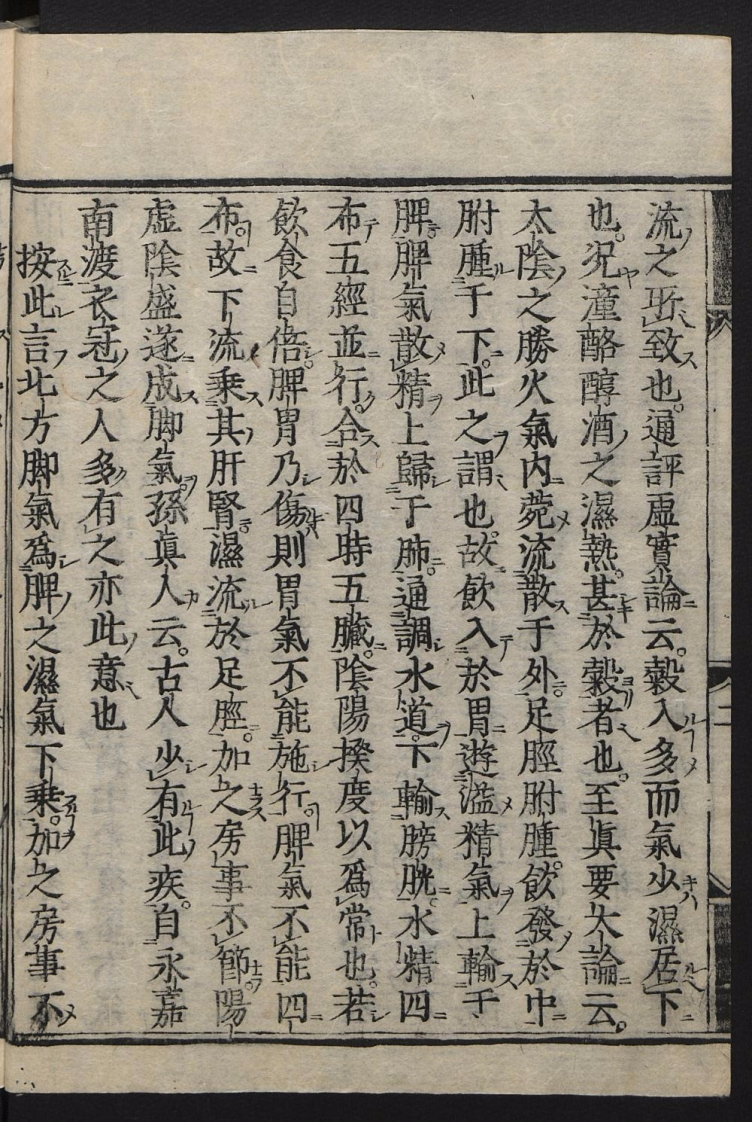 流之所致也。通評虛實論云。穀入多而氣少濕居下
也。况湩酪醇酒之濕熱。甚於穀者也。至眞要大論云。
太陰之勝火氣内菀流散于外。足脛胕腫。飲發於中
胕腫于下。此之謂也。故飲入於胃遊溢精氣上輸于
脾。脾氣散精上歸于肺。通調水道。下輸膀胱。水精四
布五經並行。合於四時五臟。陰陽揆度以爲常也。若
飲食自倍。脾胃乃傷則胃氣不能施行。脾氣不能四
布。故下流乘其肝腎濕流於足脛。加之房事不節陽
虛陰盛遂成脚氣。孫眞人云。古人少有此疾。自永嘉
南渡衣冠之人多有之亦此意也
按此言北方脚氣爲脾之濕氣下乗。加之房事不